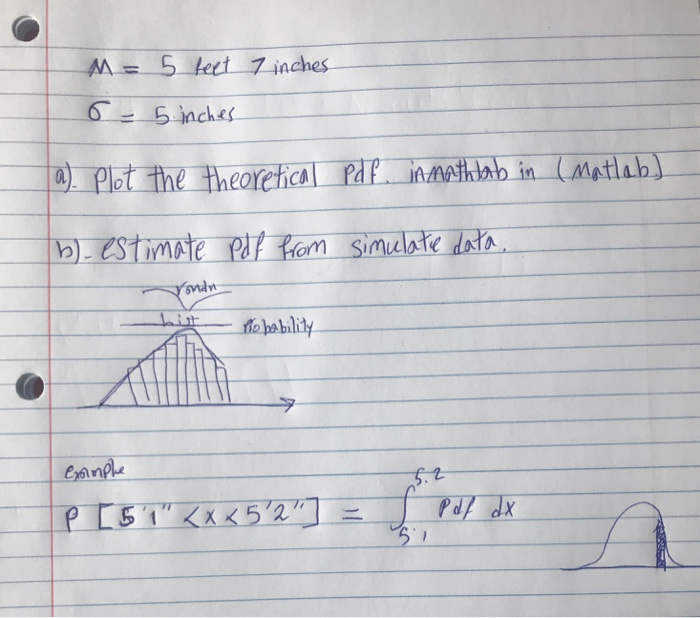 M = 5 feet 7 inches
σ = 5 inches
a). Plot the theoretical pdf. inmathlab in (Matlab)
b)- estimate pdf from simulate data.
randn
hist probability
example
P [5'1" <x<5'2"] = ∫ 5.1 5.2 pdf dx